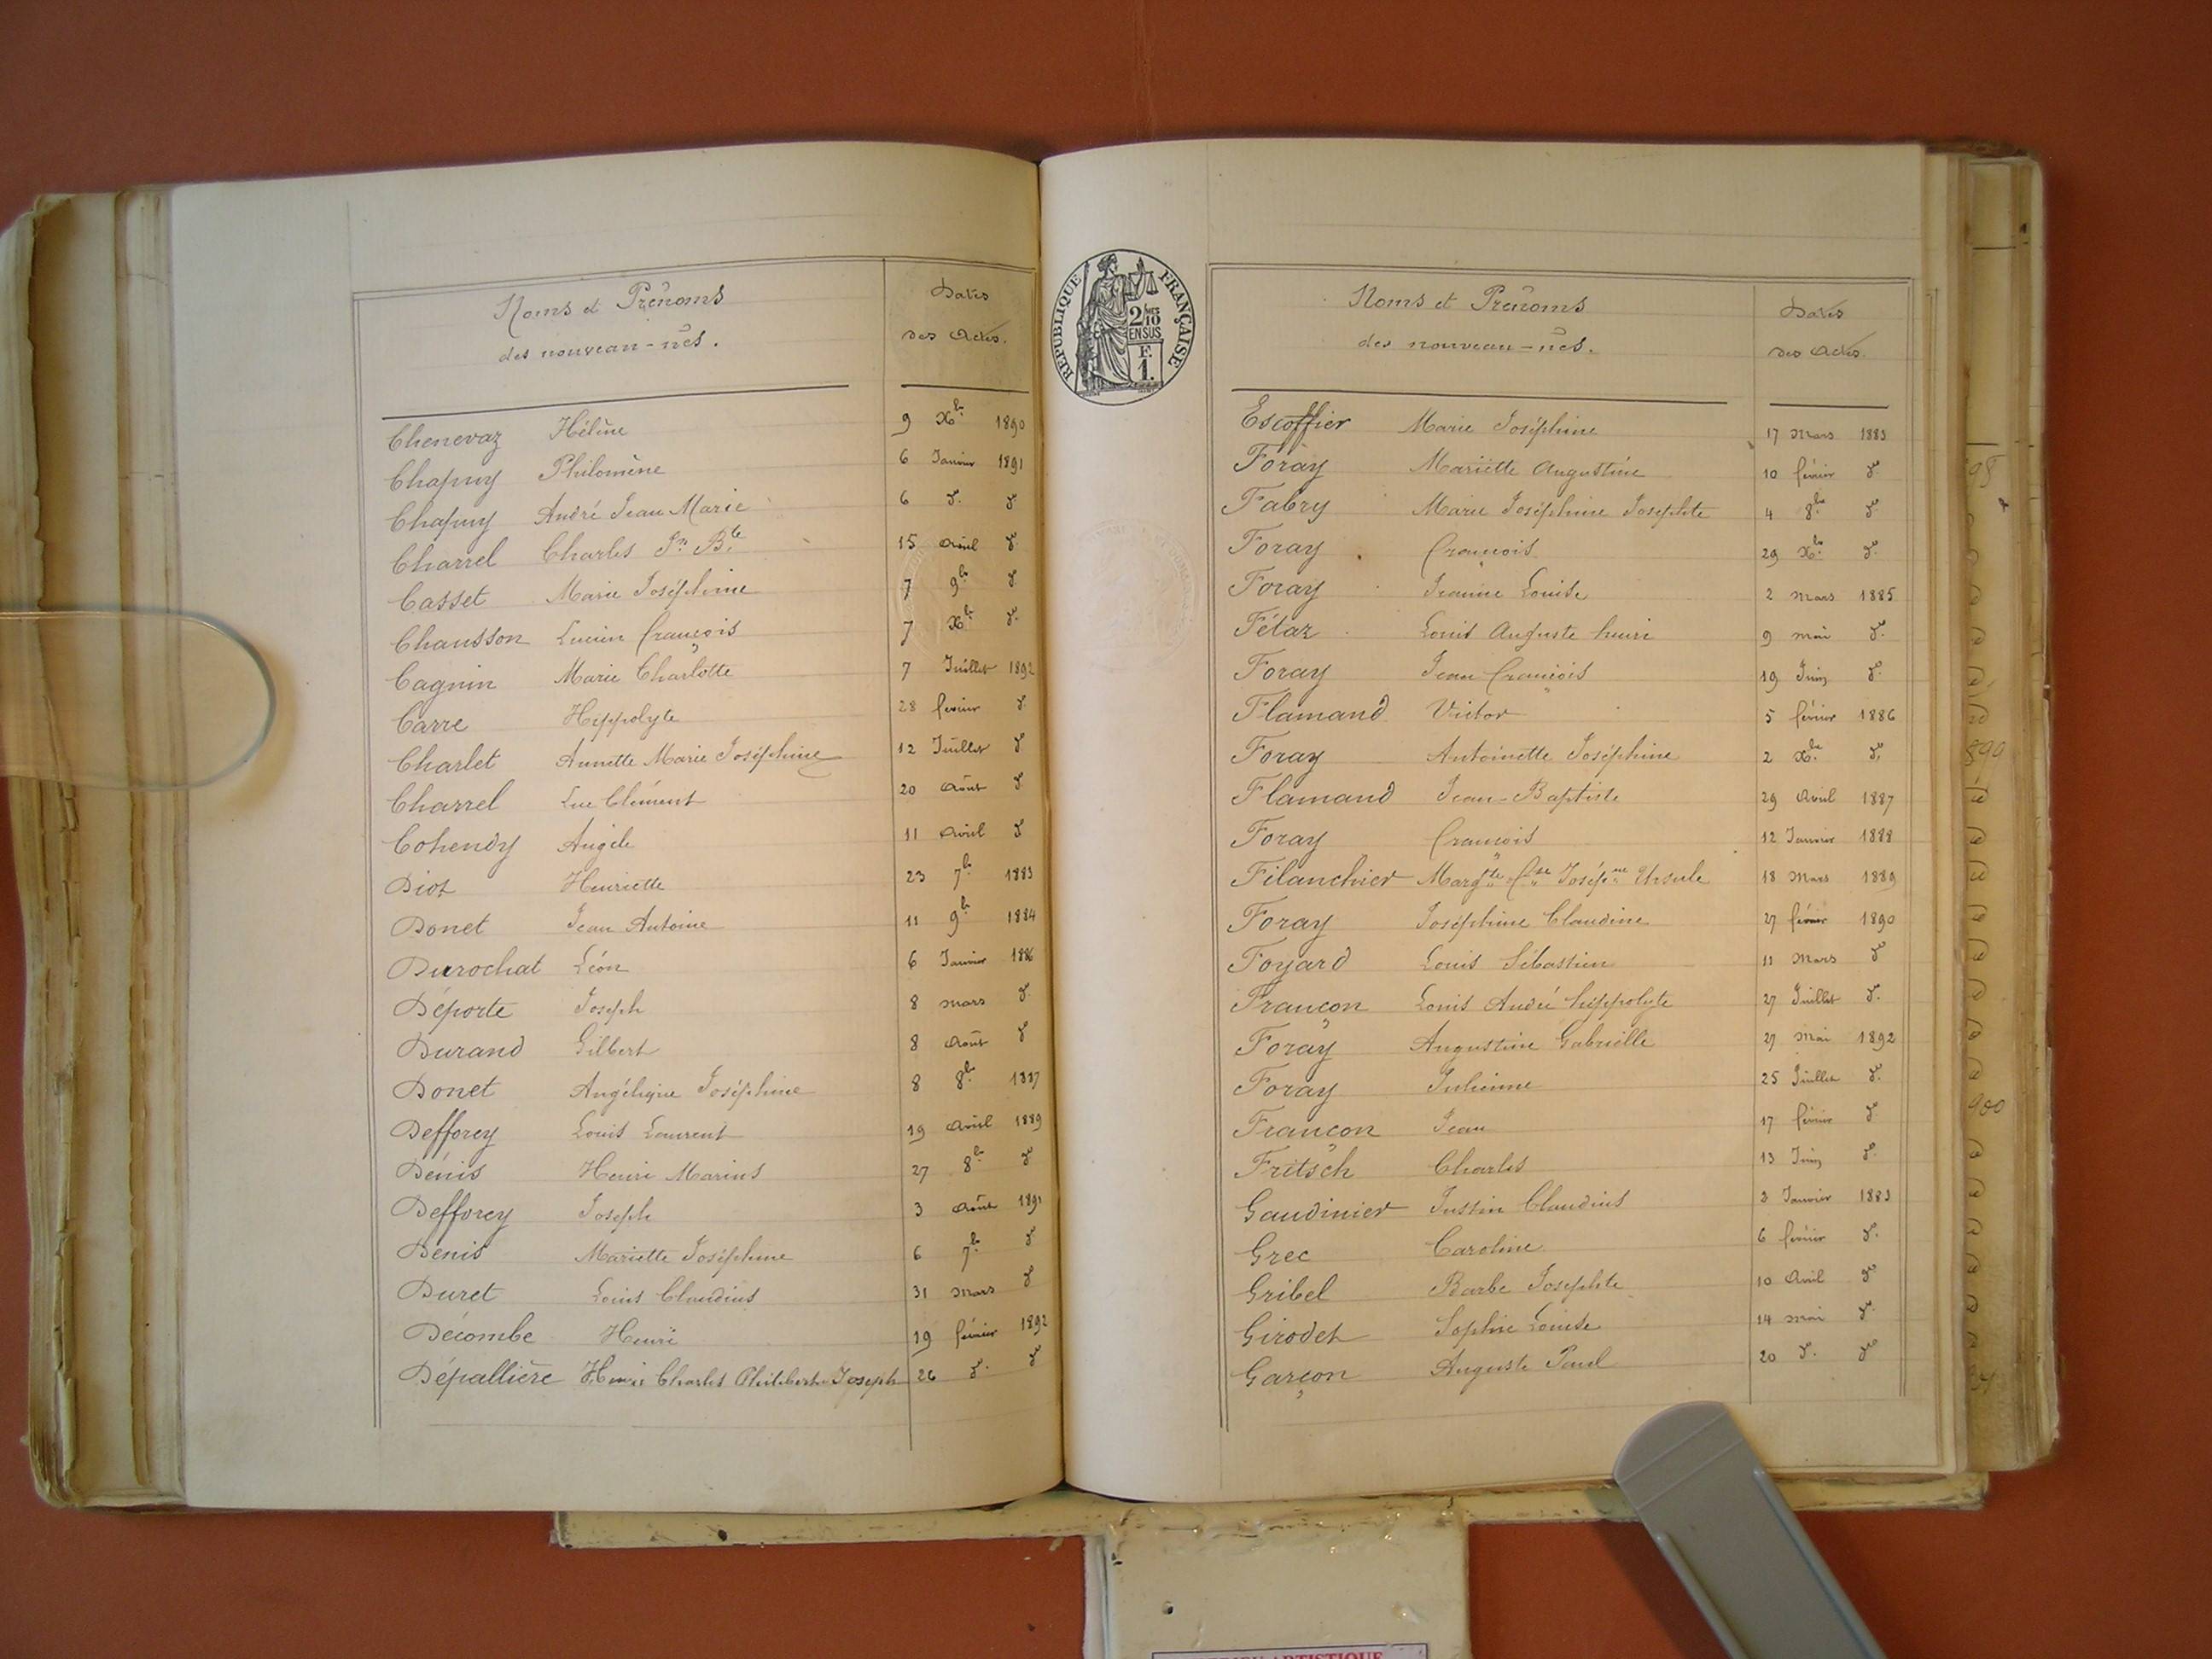 Noms et Prénoms
des nouveau-nés.
Dates
des Actes.
Chenevaz Hélène 9 Xbre 1890
Chapuy Philomène 6 Janvier 1891
Chapuy André Jean Marie 6 do do
Charrel Charles Jn Bte 15 Avril do
Casset Marie Joséphine 7 9bre do
Chausson Lucien François 7 Xbre do
Cagnin Marie Charlotte 7 Juillet 1892
Carre Hippolyte 28 février do
Charlet Annette Marie Joséphine 12 Juillet do
Charrel Luc Clément 20 Août do
Cohendy Angèle 11 Avril do
Diot Henriette 23 7bre 1883
Donet Jean Antoine 11 9bre 1884
Durochat Léon 6 Janvier 1886
Déporte Joseph 8 mars do
Durand Gilbert 8 Août do
Donet Angélique Joséphine 8 8bre 1887
Defforey Louis Laurent 19 Avril 1889
Dénis Henri Marius 27 8bre do
Defforey Joseph 3 Août 1891
Denis Mariette Joséphine 6 7bre do
Duret Louis Claudius 31 Mars do
Décombe Henri 19 février 1892
Dépallière Henri Charles Philibert Joseph 26 do do
REPUBLIQUE FRANÇAISE
2/10 MES
EN SUS
F.
1.
Noms et Prénoms
des nouveau-nés.
Dates
des Actes.
Escoffier Marie Joséphine 17 Mars 1883
Foray Mariette Augustine 10 février do
Fabry Marie Joséphine Josephte 4 8bre do
Foray François 29 Xbre do
Foray Jeanne Louise 2 Mars 1885
Fétaz Louis Auguste henri 9 mai do
Foray Jean François 19 Juin do
Flamand Victor 5 février 1886
Foray Antoinette Joséphine 2 Xbre do
Flamand Jean-Baptiste 29 Avril 1887
Foray François 12 Janvier 1888
Filanchier Margte Fse Joséphne Ursule 18 Mars 1889
Foray Joséphine Claudine 27 février 1890
Foyard Louis Sébastien 11 Mars do
Françon Louis André hippolyte 27 Juillet do
Foray Augustine Gabrielle 27 Mai 1892
Foray Julienne 25 Juillet do
Françon Jean 17 février do
Fritsch Charles 13 Juin do
Gaudinier Justin Claudius 2 Janvier 1883
Grec Caroline 6 février do
Gribel Barbe Josephte 10 Avril do
Girodet Sophie Louise 14 mai do
Garçon Auguste Paul 20 do do
890
900
ARTISTIQUE